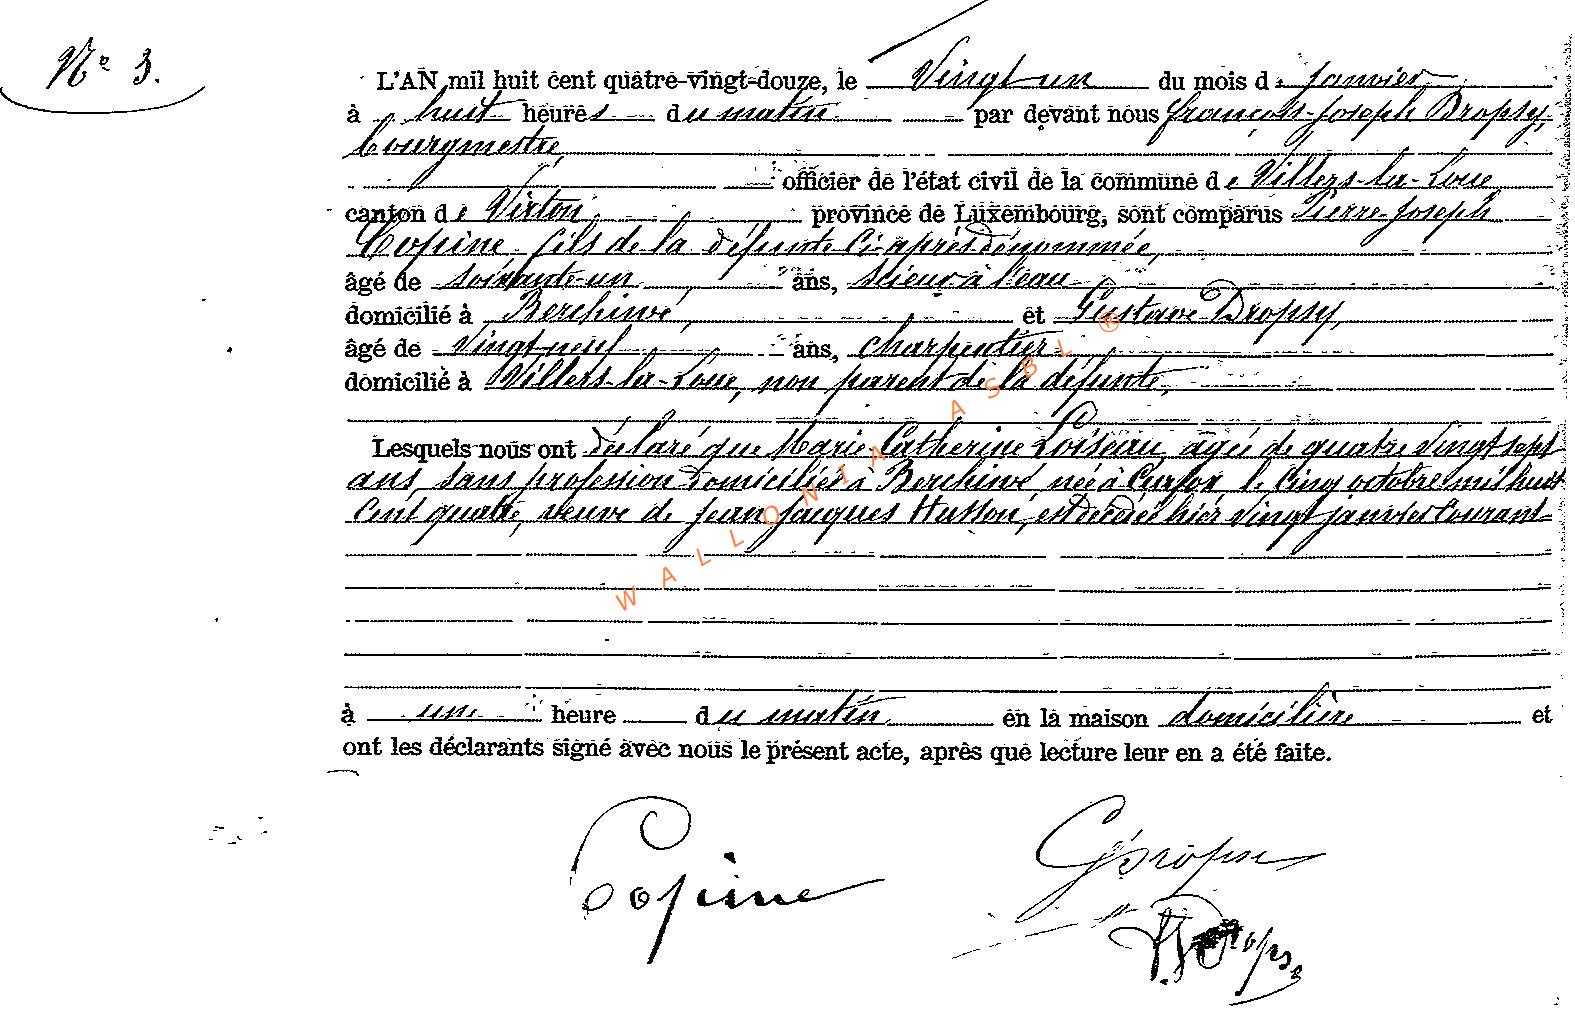 N° 3.
L'AN mil huit cent quatre-vingt-douze, le Vingt un du mois de janvier
à huit heures du matin par devant nous françois-Joseph Dropsy,
bourgmestre,
officier de l'état civil de la commune de Villers-la-Loue
canton de Virton, province de Luxembourg, sont comparus Pierre-Joseph
Copine fils de la défunte ci-après dénommée,
âgé de soixante-un ans, scieur à l'eau
domicilié à Berchiwé, et Gustave Dropsy,
âgé de vingt neuf ans, charpentier
domicilié à Villers-la-Loue, non parent de la défunte,
Lesquels nous ont déclaré que Marie Catherine Loiseau, agée de quatre vingt sept
ans, sans profession domiciliée à Berchiwé, née à Cussor, le cinq octobre mil huit
cent quatre, veuve de jean jacques Husson, est décédée hier vingt janvier courant
à une heure du matin en la maison domicilière et
ont les déclarants signé avec nous le présent acte, après que lecture leur en a été faite.
Copine
GDropsy
Dropsy
WALLONIA ASBL ®